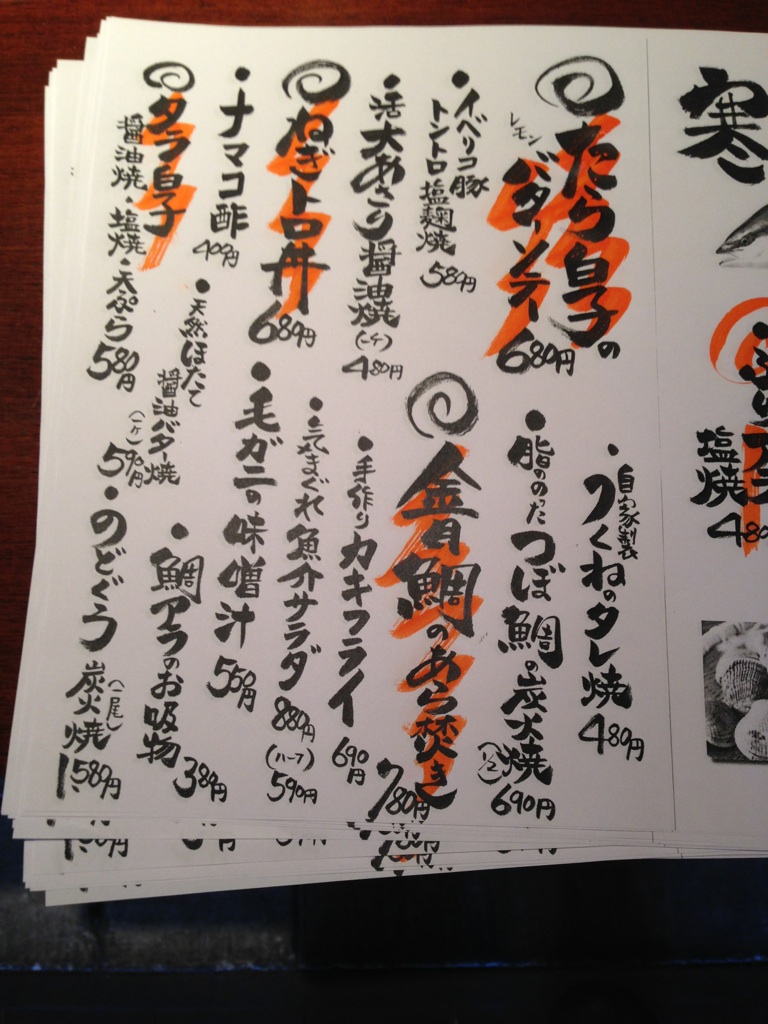 寒
塩焼
480
たら白子の
レモン
バターソテー
680円
・イベリコ豚
トントロ塩麹焼
580円
・活大あさり醤油焼
(一ケ)
480円
ねぎトロ丼
680円
・ナマコ酢
400円
タラ白子
醤油焼・塩焼・天ぷら
580円
・自家製
つくねのタレ焼
480円
・脂ののった
つぼ鯛の炭火焼
690円
金目鯛のあら焚き
780円
・手作りカキフライ
690円
・気まぐれ魚介サラダ
880円
(ハーフ)
590円
・毛ガニの味噌汁
560円
・天然ほたて
醤油バター焼
(一ケ)
590円
・鯛アラのお吸物
380円
・のどぐろ
炭火焼
(一尾)
1,580円